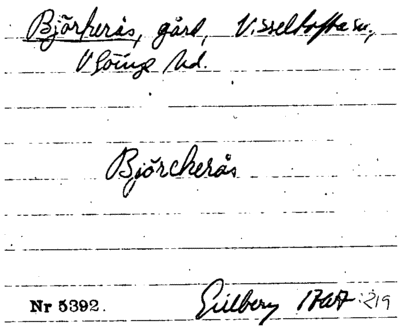 Björkerås, gård, Visseltofta sn,
V Göinge hd.
Björckerås
Nr 5392. Gillberg 1767 :219